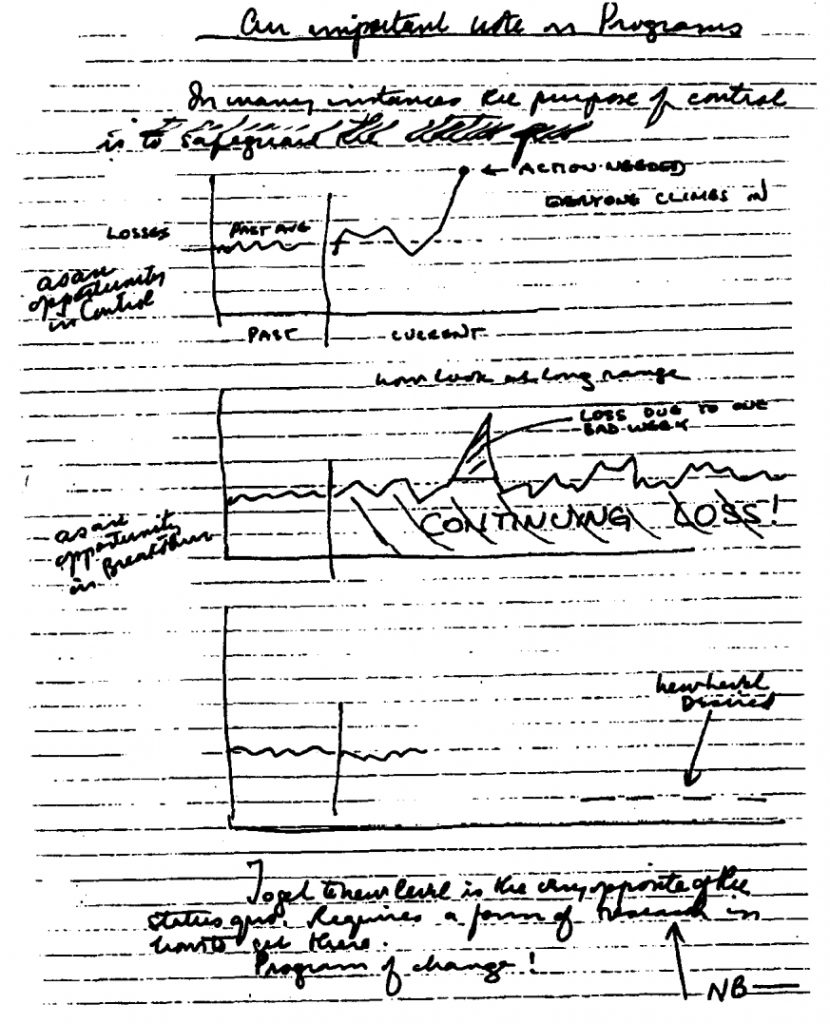 An important note on Programs
In many instances the purpose of control
is to safeguard the status quo
← ACTION NEEDED
EVERYONE CLIMBS IN
LOSSES
PAST AVG
as an
opportunity
in Control
PAST
CURRENT
now look at long range
LOSS DUE TO ONE
BAD WEEK
CONTINUING LOSS!
as an
opportunity
in Breakthru
new level
Desired
To get to new level is the very opposite of the
status quo. Requires a form of research in
how to get there.
Program of change!
NB